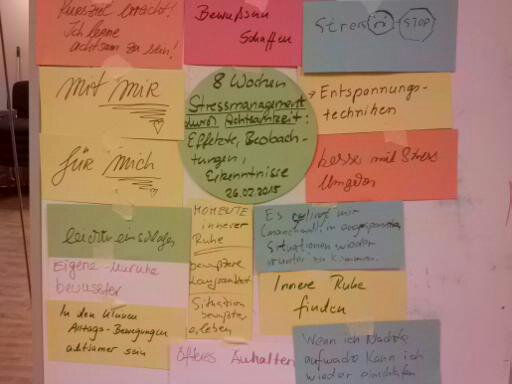 Kursziel erreicht!
Ich lerne
achtsam zu sein!
Bewusstsein
Schaffen
Stress
STOP
mit MIR
8 Wochen
Stressmanagement
durch Achtsamkeit:
Effekte, Beobach-
tungen,
Erkenntnisse
26.02.2015
→ Entspannungs-
techniken
für mich
besser mit Stress
Umgehen
leichter einschlafen
MOMENTE
innerer
Ruhe
bewusstere
Langsamkeit
Es gelingt mir
(manchmal) in angespannten
Situationen wieder
runter zu kommen.
Eigene Unruhe
bewusster
In den kleinen
Alltags-Bewegungen
achtsamer sein
Situation
bewusster
erleben
Innere Ruhe
finden
Öfteres Innehalten
Wenn ich Nachts
aufwache kann ich
wieder einschlafen